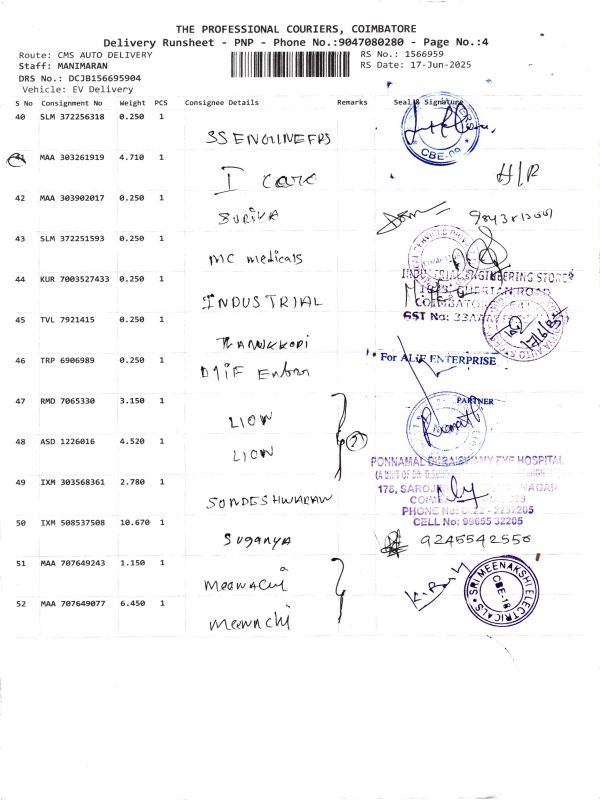 THE PROFESSIONAL COURIERS, COIMBATORE
Delivery Runsheet - PNP - Phone No.:9047080280 - Page No.:4
Route: CMS AUTO DELIVERY
RS No.: 1566959
Staff: MANIMARAN
RS Date: 17-Jun-2025
DRS No.: DCJB156695904
Vehicle: EV Delivery
S No Consignment No Weight PCS Consignee Details Remarks Seal & Signature
40 SLM 372256318 0.250 1
SS ENGINEERS
CBE-09
41 MAA 303261919 4.710 1
I care
H/R
42 MAA 303902017 0.250 1
SURIYA
43 SLM 372251593 0.250 1
MC medicals
INDUSTRIAL ENGINEERING STORES
44 KUR 7003527433 0.250 1
INDUSTRIAL
COIMBATORE
GST No: 33AAA
45 TVL 7921415 0.250 1
46 TRP 6906989 0.250 1
For ALIF ENTERPRISE
PARTNER
47 RMD 7065330 3.150 1
LION
48 ASD 1226016 4.520 1
LION
2
PONNAMAL DURAISWAMY EYE HOSPITAL
49 IXM 303568361 2.780 1
SONDESHWARAN
PHONE No: 0422 - 2232205
CELL No: 99655 32205
50 IXM 508537508 10.670 1
Suganya
9245542550
51 MAA 707649243 1.150 1
meenachi
SRI MEENAKSHI ELECTRICALS
CBE-18
52 MAA 707649077 6.450 1
meenachi